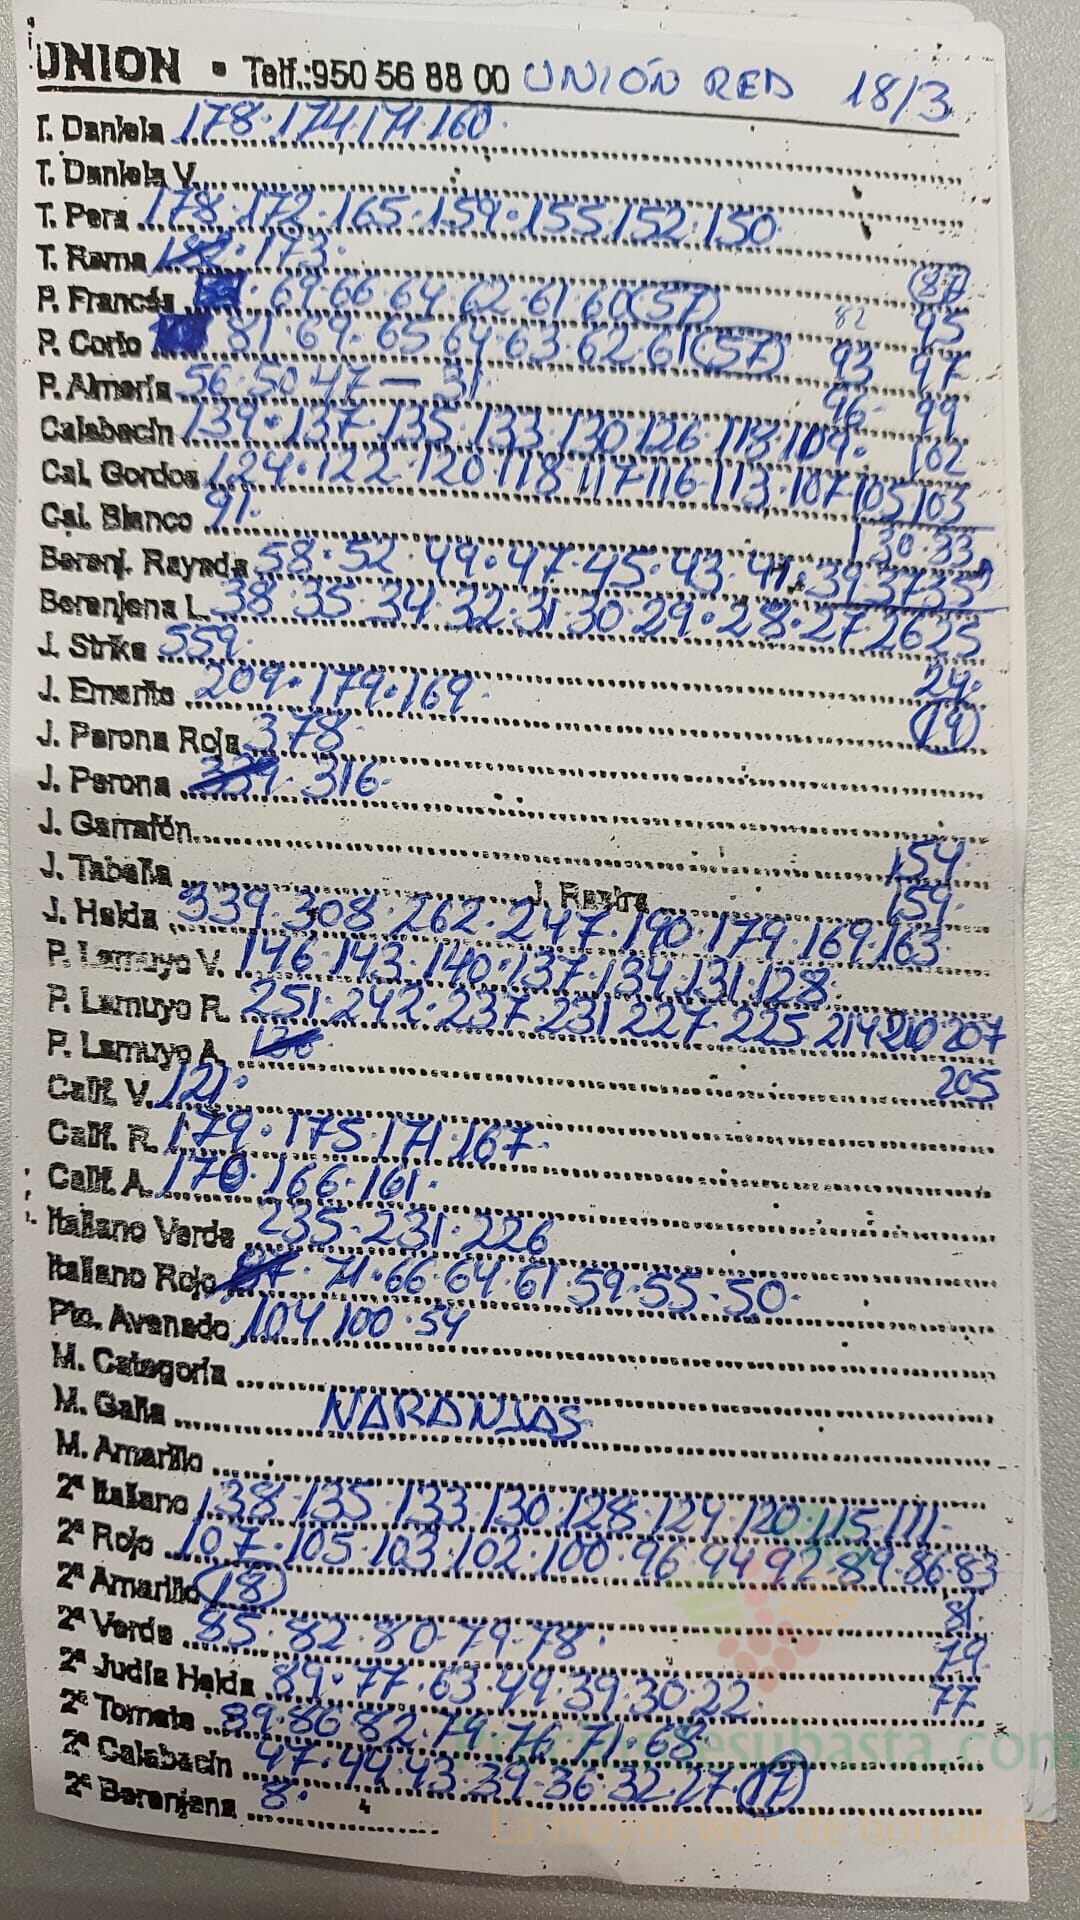 UNION • Telf.:950 56 88 00 UNIÓN RED 18/3
T. Daniela 178·174·171·160·
T. Daniela V.
T. Pera 178·172·165·159·155·152·150
T. Rama 182·173·
(87)
P. Francés 69·66·64·62·61·60(57) 82 95
P. Corto 81·69·65·64·63·62·61(57) 93 97
P. Almería 56·50·47—31· 96· 99
Calabacín 139·137·135·133·130·126·118·109· 102
Cal. Gordos 124·122·120·118·117·116·113·107·105·103
Cal. Blanco 91· 30·33
Berenj. Rayada 58·52·49·47·45·43·41·39·37·35
Berenjena L. 38·35·34·32·31·30·29·28·27·26·25
J. Strike 559· 24·
J. Emerite 209·179·169· (19)
J. Perona Roja 378·
J. Perona 339·316·
J. Garrafón 154·
J. Tabella J. Rastra 159·
J. Helda 339·308·262·247·190·179·169·163
P. Lamuyo V. 146·143·140·137·134·131·128·
P. Lamuyo R. 251·242·237·231·227·225·214·210·207
P. Lamuyo A. 205
Calif. V. 121·
Calif. R. 179·175·171·167·
Calif. A. 170·166·161·
Italiano Verde 235·231·226
Italiano Rojo 87·71·66·64·61·59·55·50·
Pto. Avanado 104 100·54
M. Categoría
M. Galia NARANJAS
M. Amarillo
2ª Italiano 138·135·133·130·128·124·120·115·111·
2ª Rojo 107·105·103·102·100·96·94·92·89·86·83
2ª Amarillo (18) 81·
2ª Verde 85·82·80·79·78· 79
2ª Judía Helda 89·77·63·49·39·30·22· 77
2ª Tomate 89·86·82·79·76·71·68·
2ª Calabacín 47·44·43·39·36·32·27·(17)
2ª Berenjena 8·
La mayor web de hortalizas